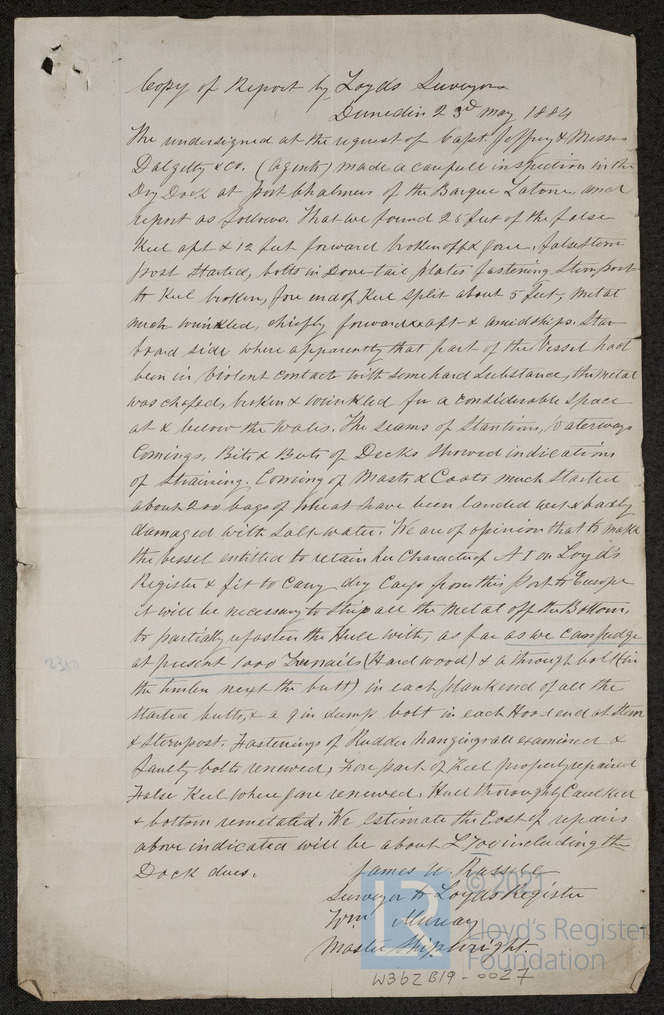 Copy of Report by Loyds Surveyors
Dunedin 23rd May 1884
The undersigned at the request of Capt. Joffrey & Messrs
Dalgetty & Co. (Agents) made a carefull inspection in the
Dry Dock at Port Chalmers of the Barque Latona, and
report as follows. That we found 25 feet of the false
Keel aft & 12 feet forward broken off & gone, false Stern
post started, bolts in Dove-tail plates fastening Sternpost
to Keel broken, fore end of Keel split about 5 feet, metal
much wrinkled, chiefly forward & aft & amidships. Star
board side where apparently that part of the Vessel had
been in violent contact with some hard substance, the metal
was chafed, broken & wrinkled for a considerable space
at & below the Wales. The seams of Stantions, Waterways
Comings, Bits & Buts of Decks showed indications
of straining. Coming of Masts & Coats much started
about 200 bags of wheat have been landed wet & badly
damaged with Saltwater. We are of opinion that to make
the vessel entitled to retain her Character of A 1 on Loyd's
Register & fit to carry dry Cargo from this Port to Europe
it will be necessary to strip all the metal off the Bottom,
to partially refasten the Hull with, as far as we can judge
at present 1000 Treenails (Hard wood) & a through bolt (in
2300
the timber next the butt) in each plank end of all the
started butts, & a 9 in dump bolt in each Hood end at Stem
& Sternpost. Fastenings of Rudder hangings all examined &
faulty bolts renewed, Fore part of Keel properly repaired
False Keel, where gone renewed, Hull thoroughly Caulked
& bottom remetaled. We estimate the Cost of repairs
above indicated will be about £700 including the
Dock dues.
James W.
Surveyor to Loyds Register
Wm Murray
Master Shipwright.
© 2021
LR
Lloyd's Register
Foundation
W362B19-0027